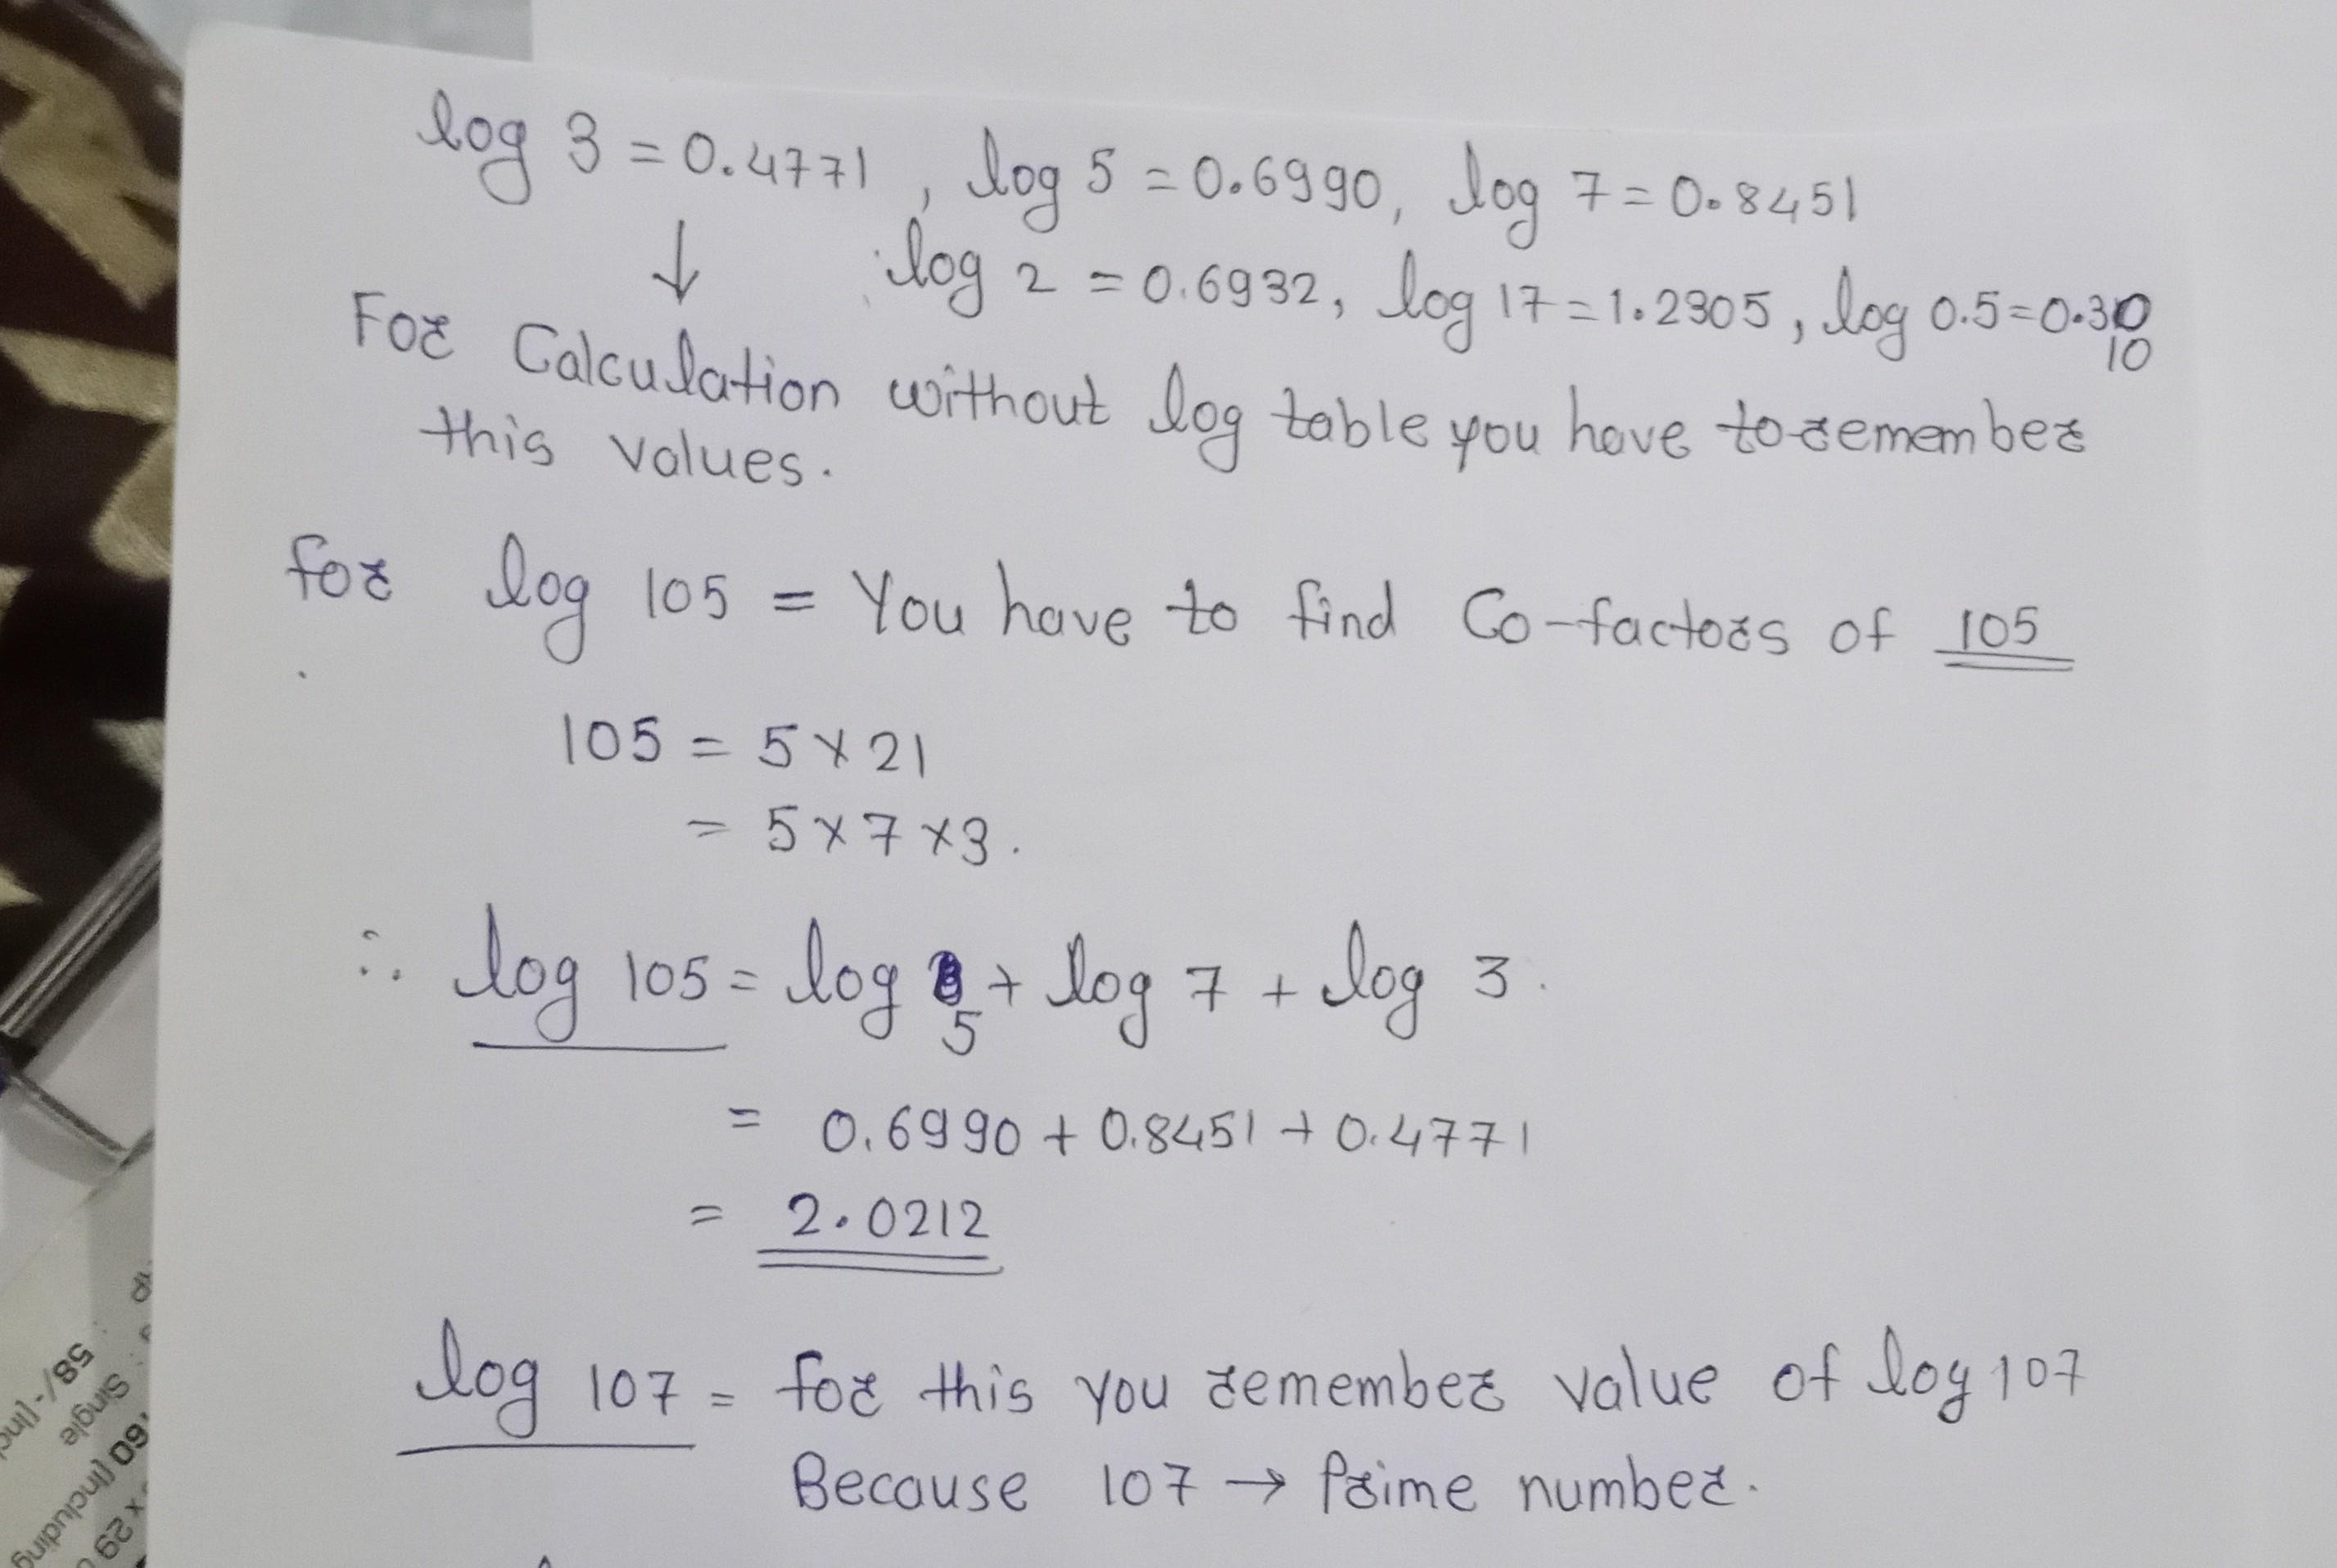 log 3 = 0.4771 , log 5 = 0.6990, log 7 = 0.8451
↓ log 2 = 0.6932, log 17 = 1.2305, log 0.5 = 0.30
10
For Calculation without log table you have to remember
this values.
for log 105 = You have to find Co-factors of 105
105 = 5 × 21
= 5 × 7 × 3.
∴ log 105 = log 5 + log 7 + log 3.
= 0.6990 + 0.8451 + 0.4771
= 2.0212
log 107 = for this you remember value of log 107
Because 107 → Prime number.
58/- [Incl
Single
60 [Including
x 29